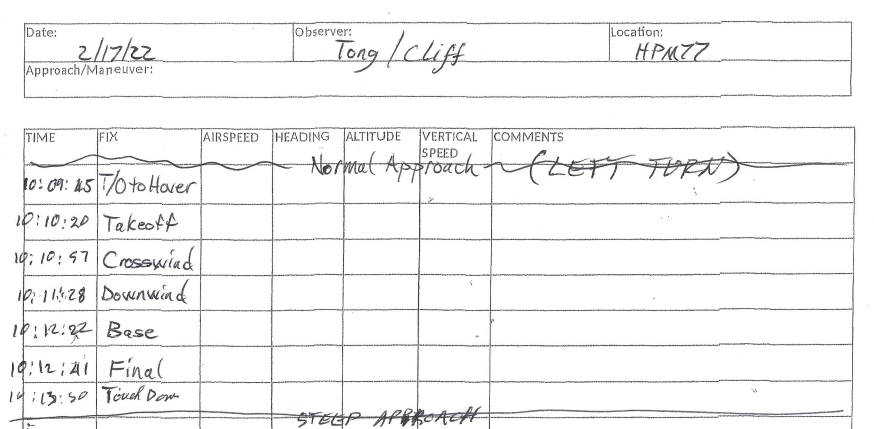 Date: Observer: Location:
2/17/22 Tong/Cliff HPM77
Approach/Maneuver:
TIME FIX AIRSPEED HEADING ALTITUDE VERTICAL SPEED COMMENTS
Normal Approach (LEFT TURN)
10:09:45 T/O to Hover
10:10:20 Takeoff
10:10:57 Crosswind
10:11:28 Downwind
10:12:22 Base
10:12:41 Final
10:13:50 Touch Down
STEEP APPROACH